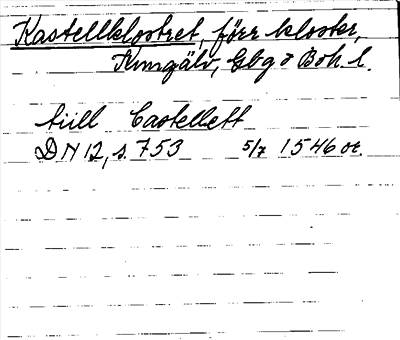 Kastellklostret, förr kloster,
Kungälv, Gbg o Boh. l.
tiill Castellett
DN 12, s. 753 5/7 1546 or.